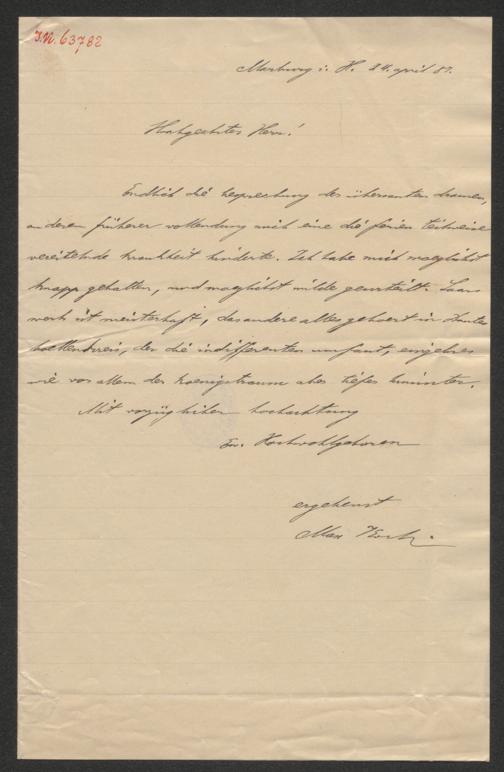 J.N. 63782
Marburg i. H. 24. april 87.
Hochgeehrter Herr!
Endlich die besprechung der übersanten dramen,
an deren früherer vollendung mich eine die ferien teilweise
vereitelnde krankheit hinderte. Ich habe mich moeglichst
knapp gehalten, und moeglichst milde geurteilt. Saars
werk ist meisterhaft, das andere alles gehoert in Dantes
hoellenkreis, der die indifferenten umfaszt, einzelnes
wie vor allem der koenigstraum aber tiefer hinunter.
Mit vorzüglicher hochachtung
Ew. Hochwohlgeboren
ergebenst
Max Koch.